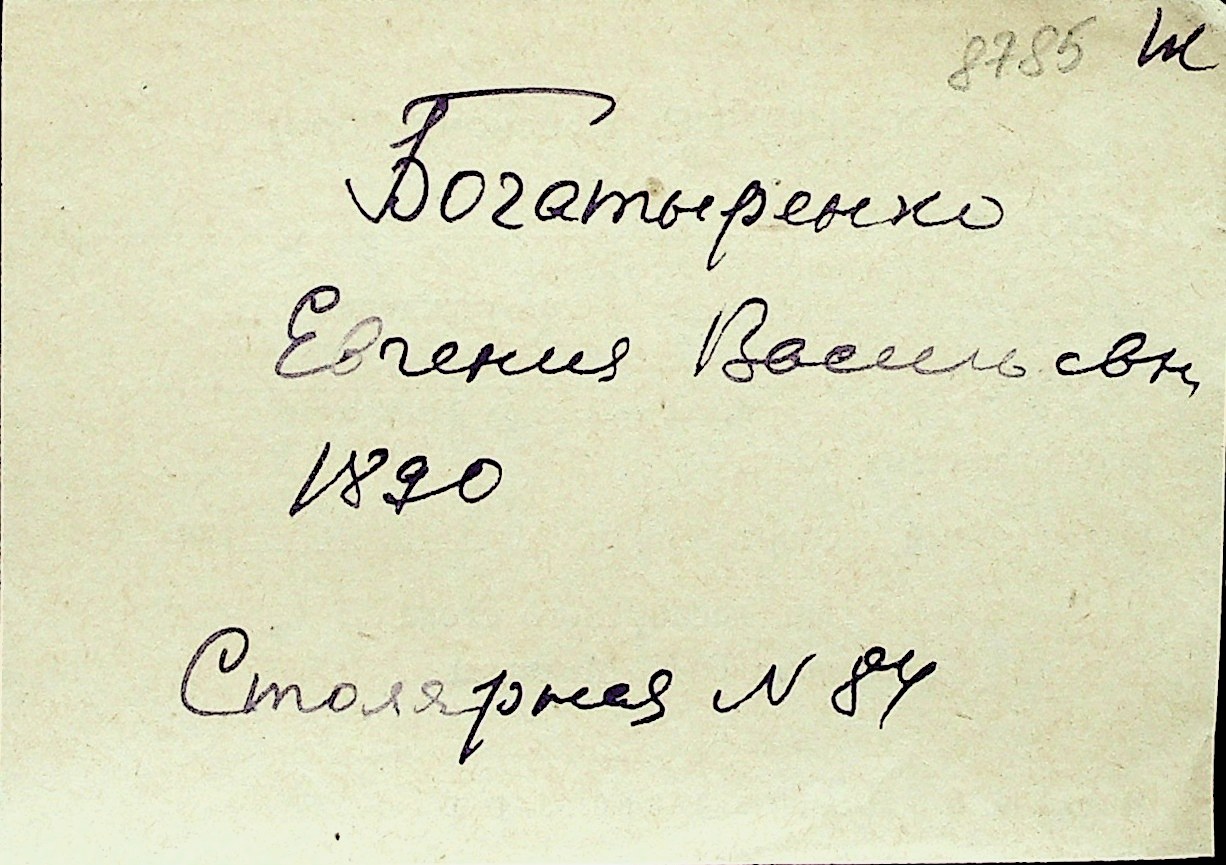 8785 Ж
Богатыренко
Евгения Васильевн
1890
Столярная N 84